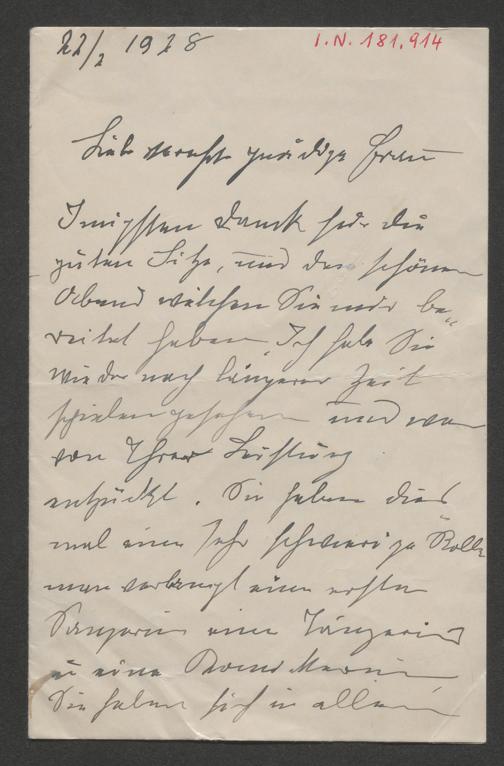 22/2 1928
I.N. 181.914
Liebe verehrte gnädige Frau
Innigsten Dank für die
guten Sitze, und den schönen
Abend welchen Sie mir be-
reitet haben. Ich habe Sie
wieder nach längerer Zeit
spielen gesehen und war
von Ihrer Leistung
entzückt. Sie haben dies
mal eine sehr schwierige Rolle
man verlangt eine ersten
Sängerin eine Tänzerin
u eine
Sie haben sich in allen